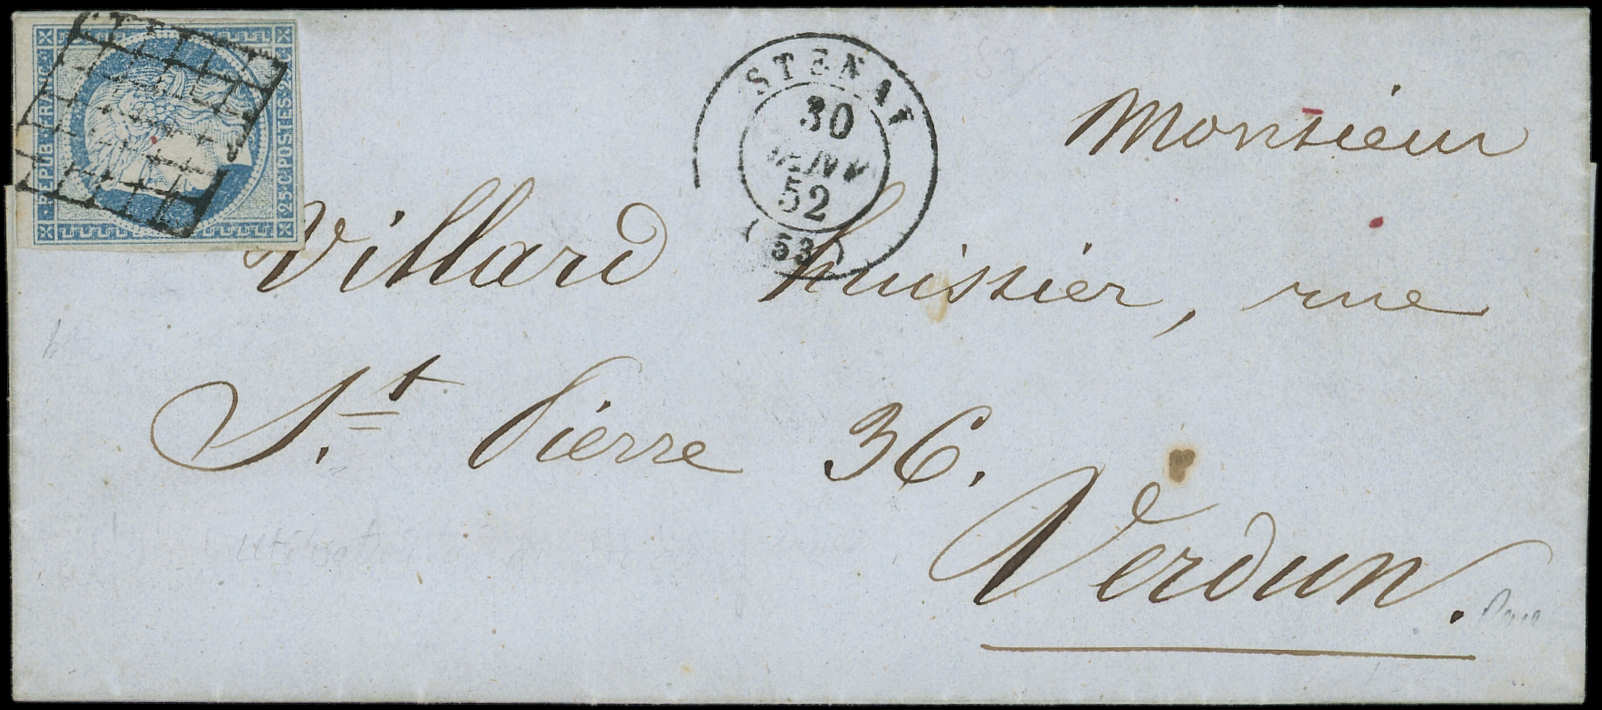 REPUB·FRANC·
25·C·POSTES·2
STENAI
30
JANV
52
(53)
Monsieur
Villard huissier, rue
St. Pierre 36.
Verdun.